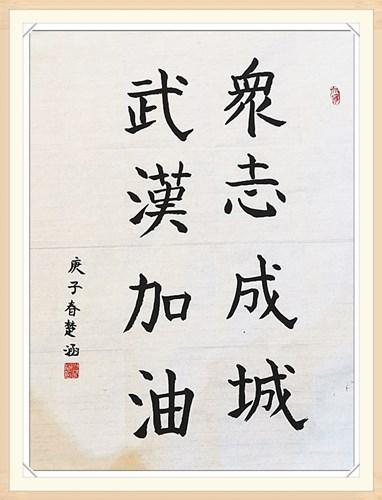 眾志成城
武漢加油
庚子春楚涵